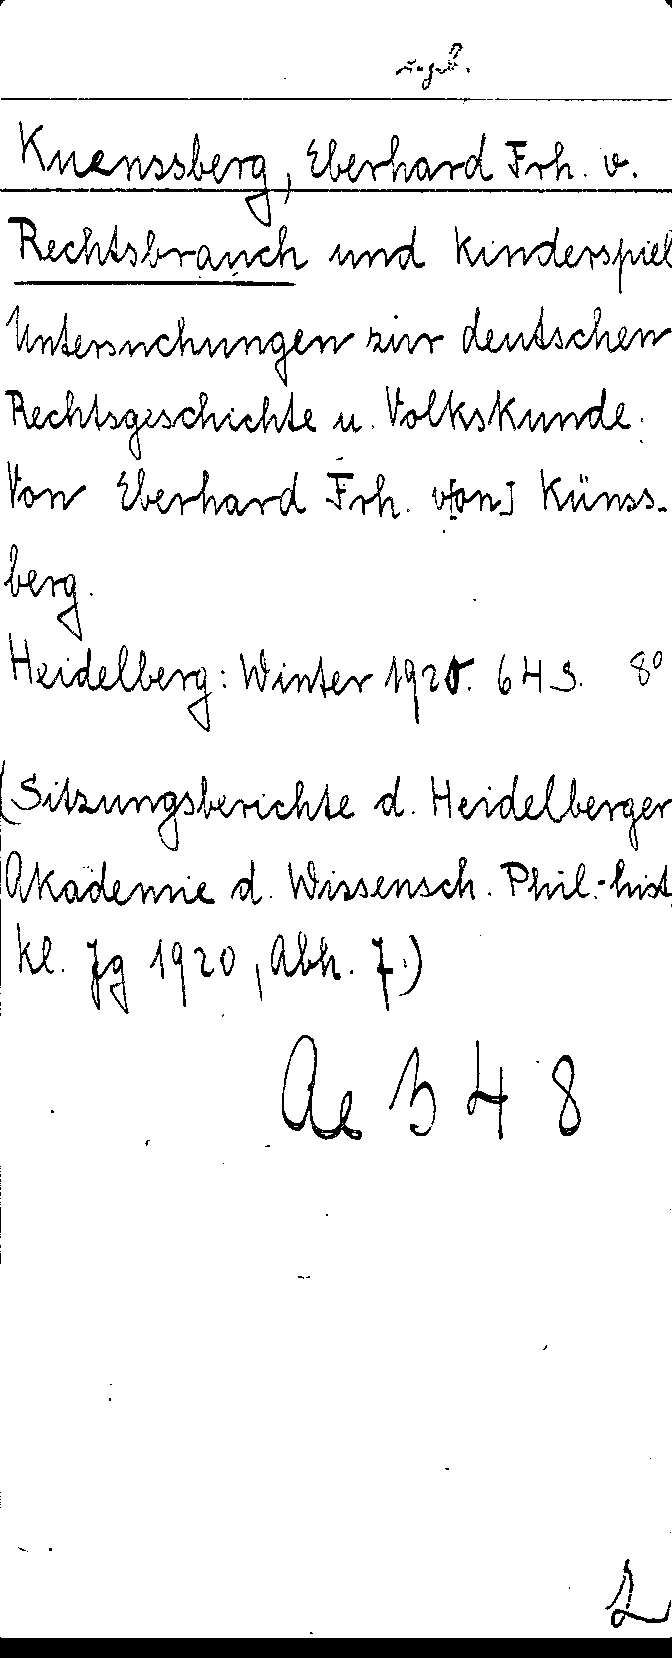 Kuenssberg, Eberhard Frh. v.
Rechtsbrauch und Kinderspiel
Untersuchungen zur deutschen
Rechtsgeschichte u. Volkskunde.
Von Eberhard Frh. v[on] Künss-
berg.
Heidelberg: Winter 1920. 64 S. 8°
(Sitzungsberichte d. Heidelberger
Akademie d. Wissensch. Phil.-hist.
Kl. Jg 1920, Abh. 7.)
Ae b 48